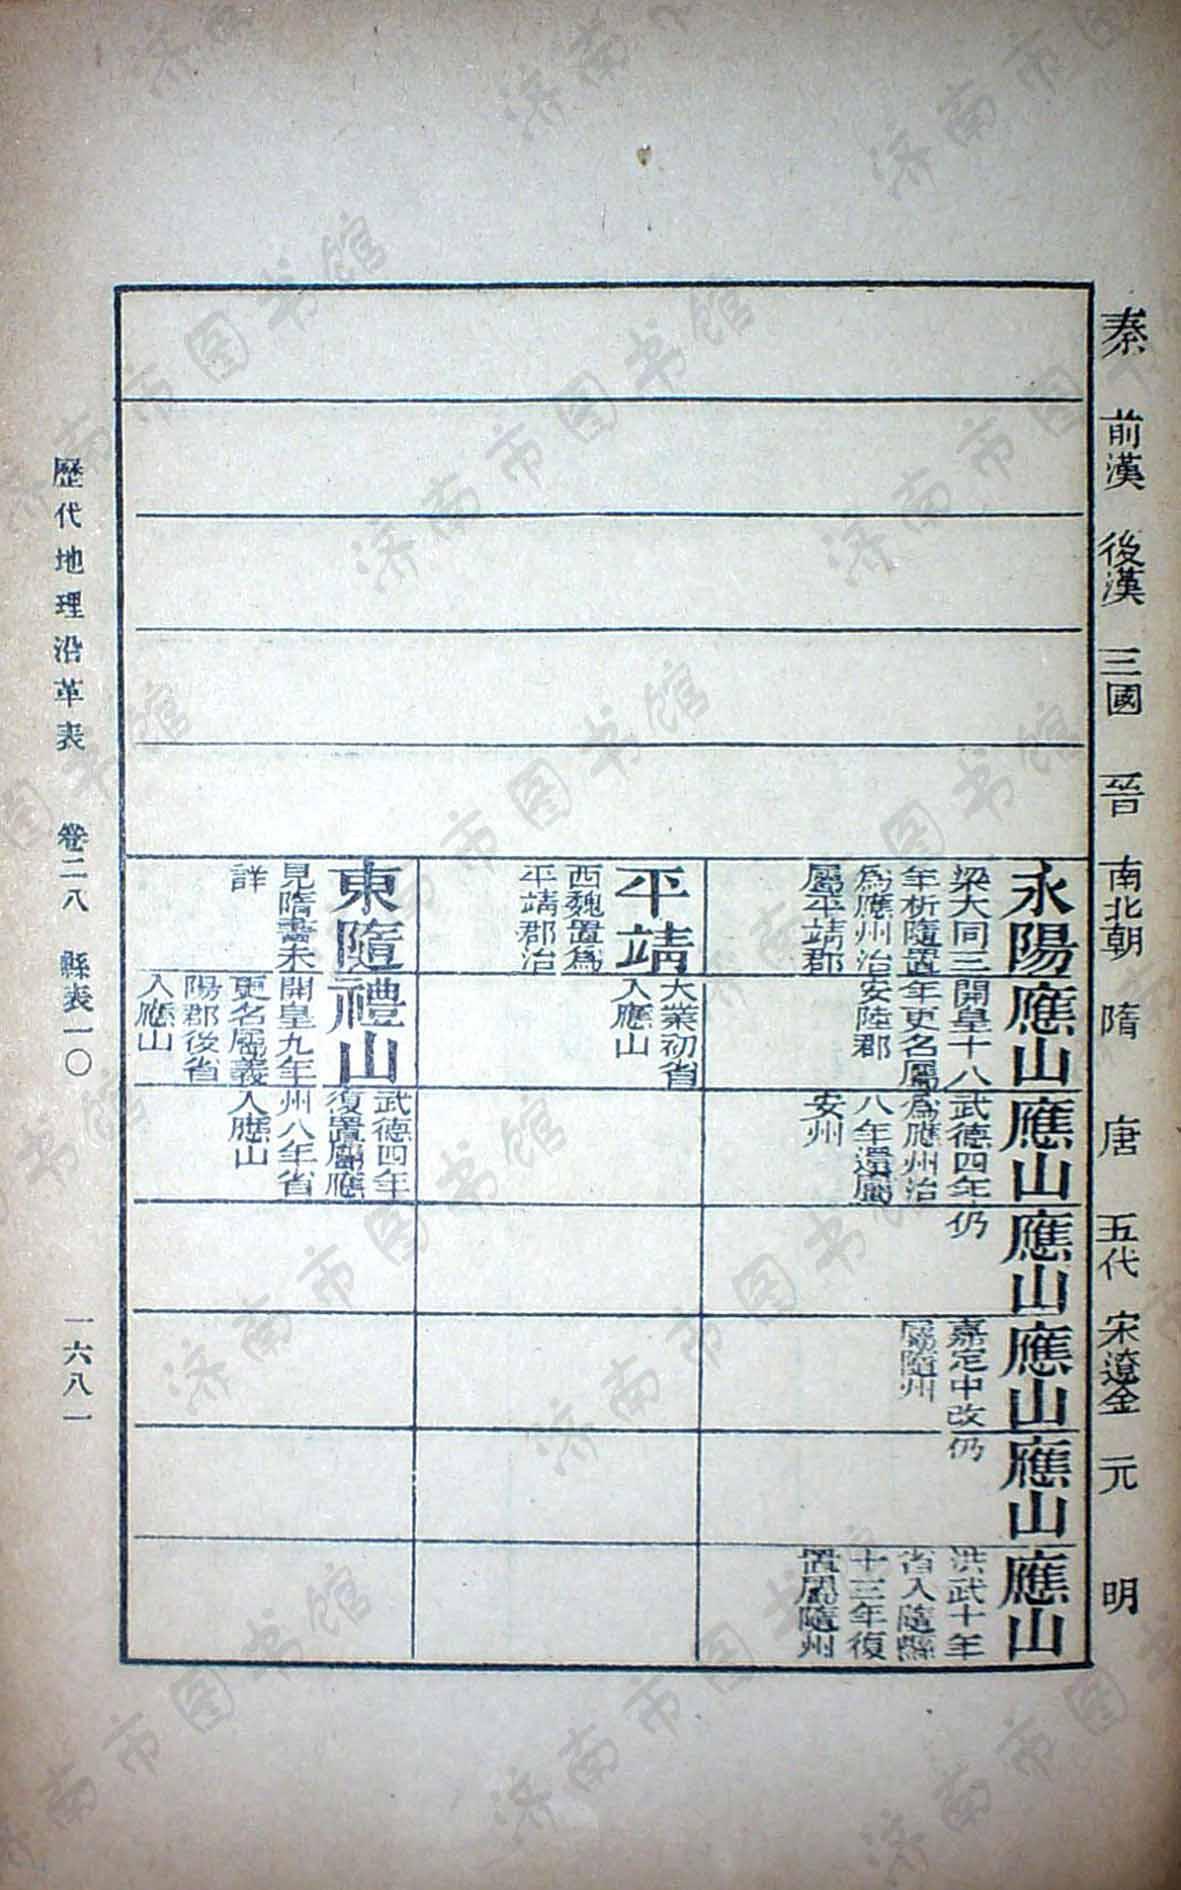 秦
前漢
後漢
三國
晉
南北朝
隋
唐
五代
宋遼金
元
明
永陽
梁大同三
年析隨置
為應州治
屬平靖郡
應山
開皇十八
年更名屬
安陸郡
應山
武德四年
為應州治
八年還屬
安州
應山
仍
應山
嘉定中改
屬隨州
應山
仍
應山
洪武十年
省入隨縣
十三年復
置屬隨州
平靖
西魏置為
平靖郡治
大業初省
入應山
東隨
見隋書未
詳
禮山
開皇九年
更名屬義
陽郡後省
入應山
武德四年
復置屬應
州八年省
入應山
歷代地理沿革表 卷二八 縣表一〇 一六八一
济南市图书馆